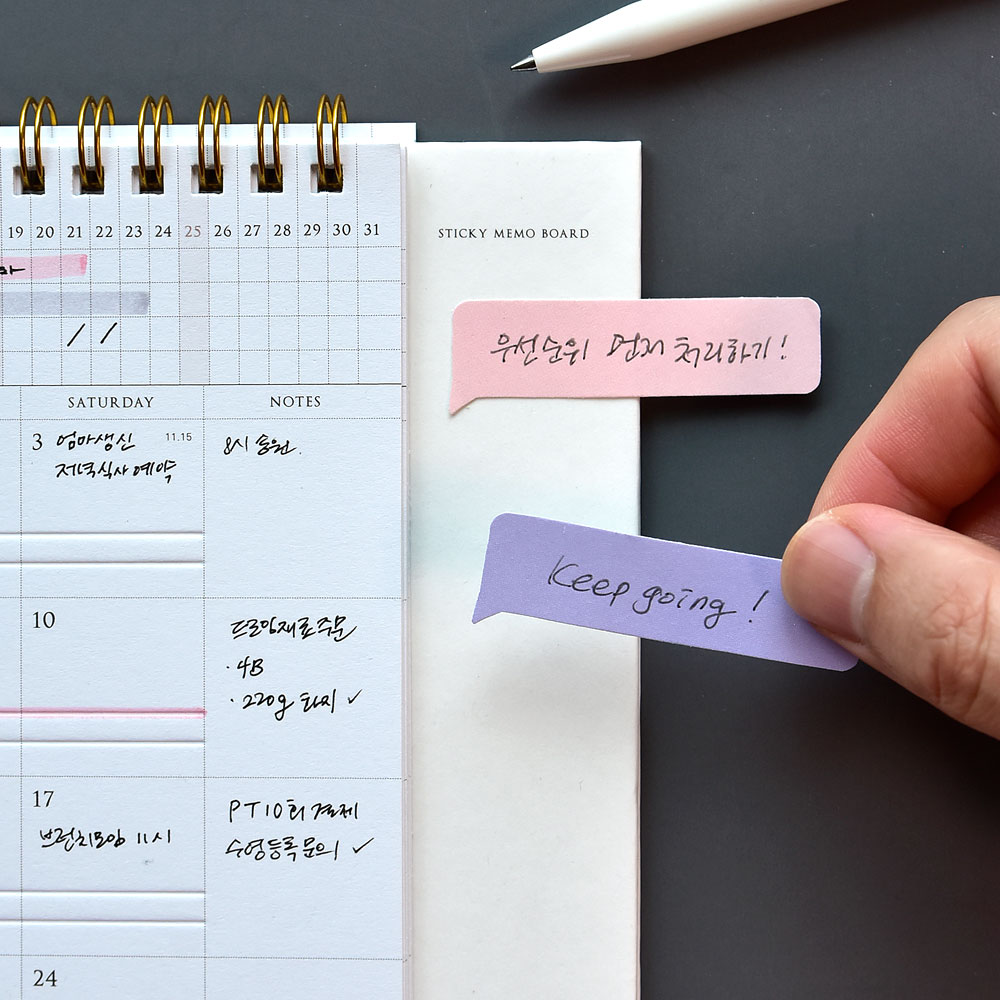 19 20 21 22 23 24 25 26 27 28 29 30 31
STICKY MEMO BOARD
우선순위 먼저 처리하기!
Keep going!
SATURDAY
NOTES
3 엄마생신 11.15
저녁식사 예약
8시 송원.
10
드로잉재료주문
· 4B
· 220g 화지 ✓
17
브런치모임 11시
PT 10회 결제
수영등록문의 ✓
24